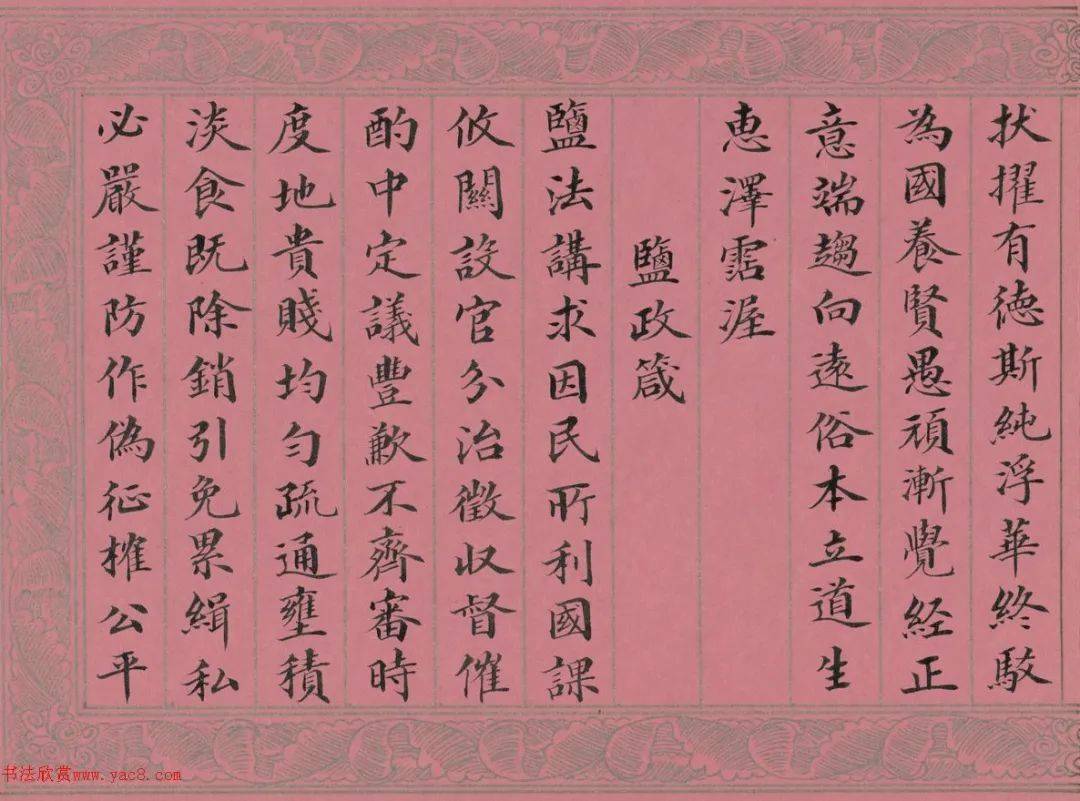 扶擢有德斯純浮華終駁
為國養賢愚頑漸覺經正
意端趨向遠俗本立道生
惠澤霑渥
鹽政箴
鹽法講求因民所利國課
攸關設官分治徵收督催
酌中定議豐歉不齊審時
度地貴賤均勻疏通壅積
淡食既除銷引免累緝私
必嚴謹防作偽征榷公平
书法欣赏www.yac8.com